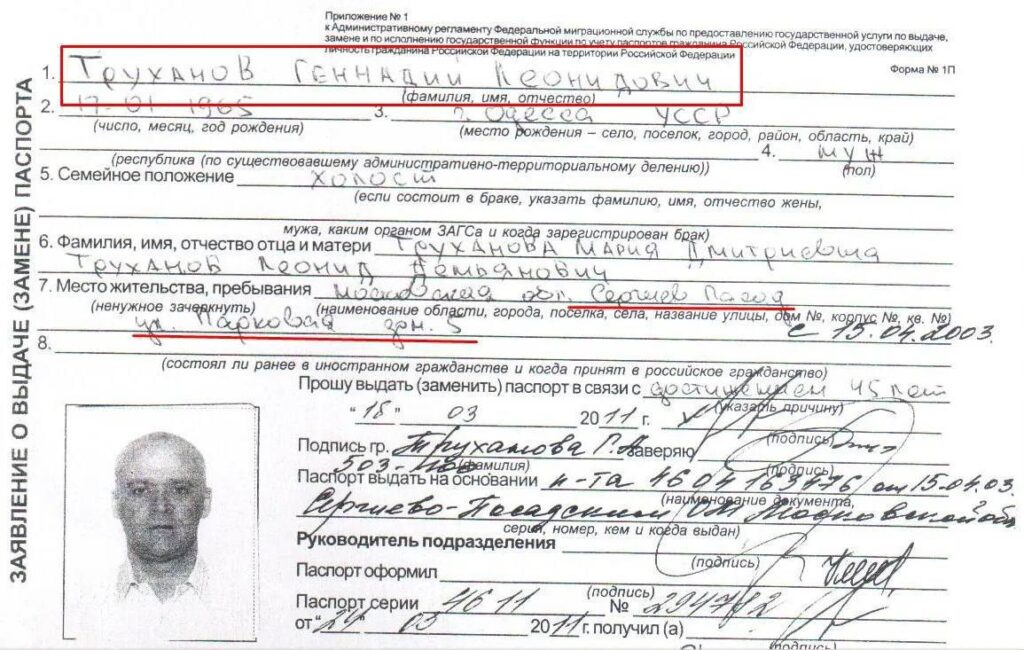 Приложение № 1
к Административному регламенту Федеральной миграционной службы по предоставлению государственной услуги по выдаче,
замене и по исполнению государственной функции по учету паспортов гражданина Российской Федерации, удостоверяющих
личность гражданина Российской Федерации на территории Российской Федерации
Форма № 1П
ЗАЯВЛЕНИЕ О ВЫДАЧЕ (ЗАМЕНЕ) ПАСПОРТА
1. Труханов Геннадий Леонидович
(фамилия, имя, отчество)
2. 17-01 1965 3. г. Одесса УССР
(число, месяц, год рождения) (место рождения – село, поселок, город, район, область, край)
4. муж
(республика (по существовавшему административно-территориальному делению)) (пол)
5. Семейное положение холост
(если состоит в браке, указать фамилию, имя, отчество жены,
мужа, каким органом ЗАГСа и когда зарегистрирован брак)
6. Фамилия, имя, отчество отца и матери Труханова Мария Дмитриевна
Труханов Леонид Демьянович
7. Место жительства, пребывания Московская обл. Сергиев Посад
(ненужное зачеркнуть) (наименование области, города, поселка, села, название улицы, дом №, корпус №, кв. №)
ул. Парковая дом. 5 с 15.04.2003.
8.
(состоял ли ранее в иностранном гражданстве и когда принят в российское гражданство)
Прошу выдать (заменить) паспорт в связи с достижением 45 лет
(указать причину)
“18” 03 2011 г.
(подпись)
Подпись гр. Труханова Г.Л. заверяю
(фамилия) (подпись)
Паспорт выдать на основании п-та 4604 163476 от 15.04.03.
(наименование документа,
Сергиево-Посадским ОМ Московской обл
серия, номер, кем и когда выдан)
Руководитель подразделения
(подпись)
Паспорт оформил
(подпись)
Паспорт серии 4611 № 294782
от “24” 03 2011 г. получил (а)
(подпись)